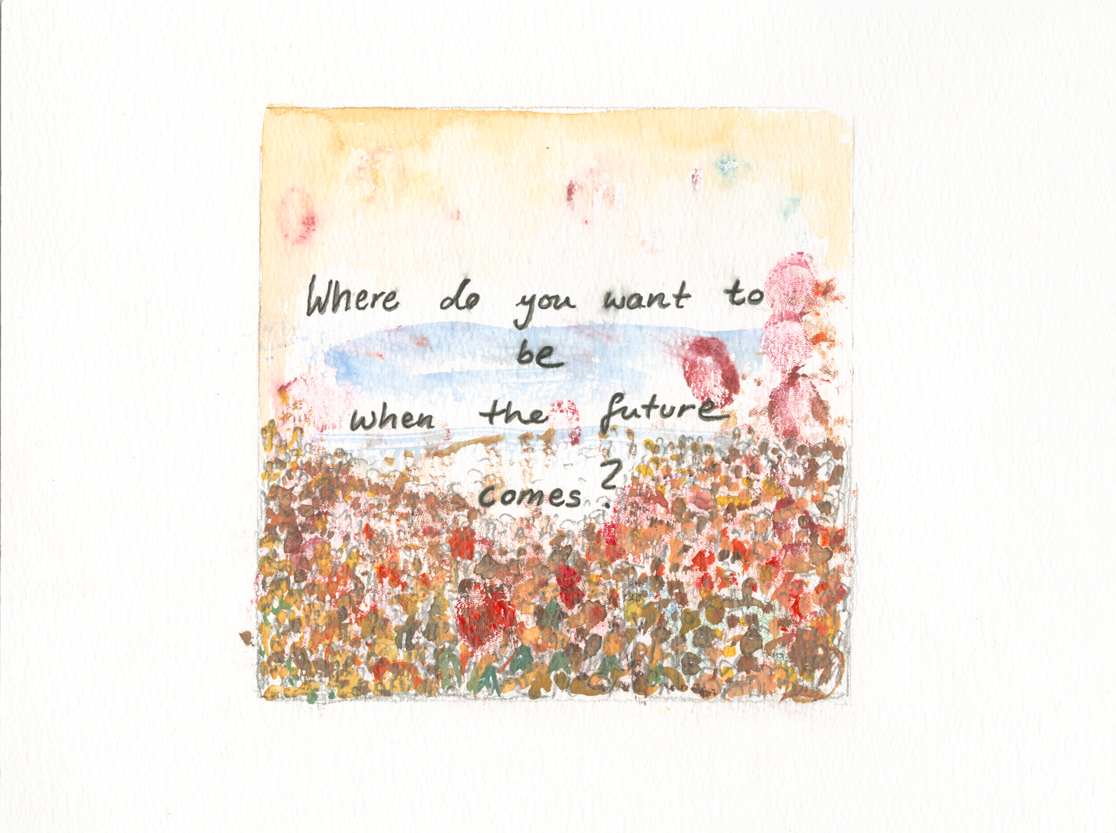 Where do you want to
be
when the future
comes?